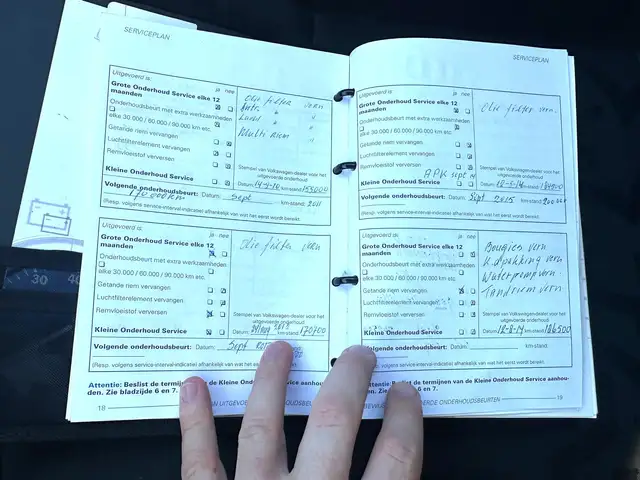 SERVICEPLAN
Uitgevoerd is: ja nee
Grote Onderhoud Service elke 12 maanden
Onderhoudsbeurt met extra werkzaamheden
elke 30 000 / 60.000 / 90.000 km etc.
Getande riem vervangen
Luchtfilterelement vervangen
Remvloeistof verversen
Kleine Onderhoud Service
Olie filter vern
Stempel van Volkswagen-dealer voor het
uitgevoerde onderhoud
Datum: km-stand: 153000
Volgende onderhoudsbeurt: Datum: Sept km-stand: 2011
(Resp. volgens service-interval-indicatie) afhankelijk van wat het eerst wordt bereikt.
Uitgevoerd is: ja nee
Grote Onderhoud Service elke 12
maanden
Onderhoudsbeurt met extra werkzaamheden
elke 30 000 / 60.000 / 90.000 km etc.
Getande riem vervangen
Luchtfilterelement vervangen
Remvloeistof verversen
Kleine Onderhoud Service
Olie filter vern
Stempel van Volkswagen-dealer voor het
uitgevoerde onderhoud
Datum: km-stand: 170700
Volgende onderhoudsbeurt: Datum: Sept
Attentie: Beslist de termijnen van de Kleine Onderhoud Service aanhou-
den. Zie bladzijde 6 en 7.
18
SERVICEPLAN
Uitgevoerd is: ja nee
Grote Onderhoud Service elke 12
maanden
Onderhoudsbeurt met extra werkzaamheden
elke 30 000 / 60.000 / 90.000 km etc.
Getande riem vervangen
Luchtfilterelement vervangen
Remvloeistof verversen
APK sept
Kleine Onderhoud Service
Olie filter vern.
Stempel van Volkswagen-dealer voor het
uitgevoerde onderhoud
Datum: km-stand:
Volgende onderhoudsbeurt: Datum: Sept 2015 km-stand: 200000
(Resp. volgens service-interval-indicatie) afhankelijk van wat het eerst wordt bereikt.
Uitgevoerd is: ja nee
Grote Onderhoud Service elke 12
maanden
Onderhoudsbeurt met extra werkzaamheden
elke 30 000 / 60.000 / 90.000 km etc.
Getande riem vervangen
Luchtfilterelement vervangen
Remvloeistof verversen
Kleine Onderhoud Service
Bougies vern
K.d.pakking vern
Waterpomp vern
Tandriem vern
Stempel van Volkswagen-dealer voor het
uitgevoerde onderhoud
Datum: 12-8-14 km-stand: 186500
Volgende onderhoudsbeurt: Datum: km-stand:
(Resp. volgens service-interval-indicatie) afhankelijk van wat het eerst wordt bereikt.
Beslist de termijnen van de Kleine Onderhoud Service aanhou-
den. Zie bladzijde 6 en 7.
19
30 40